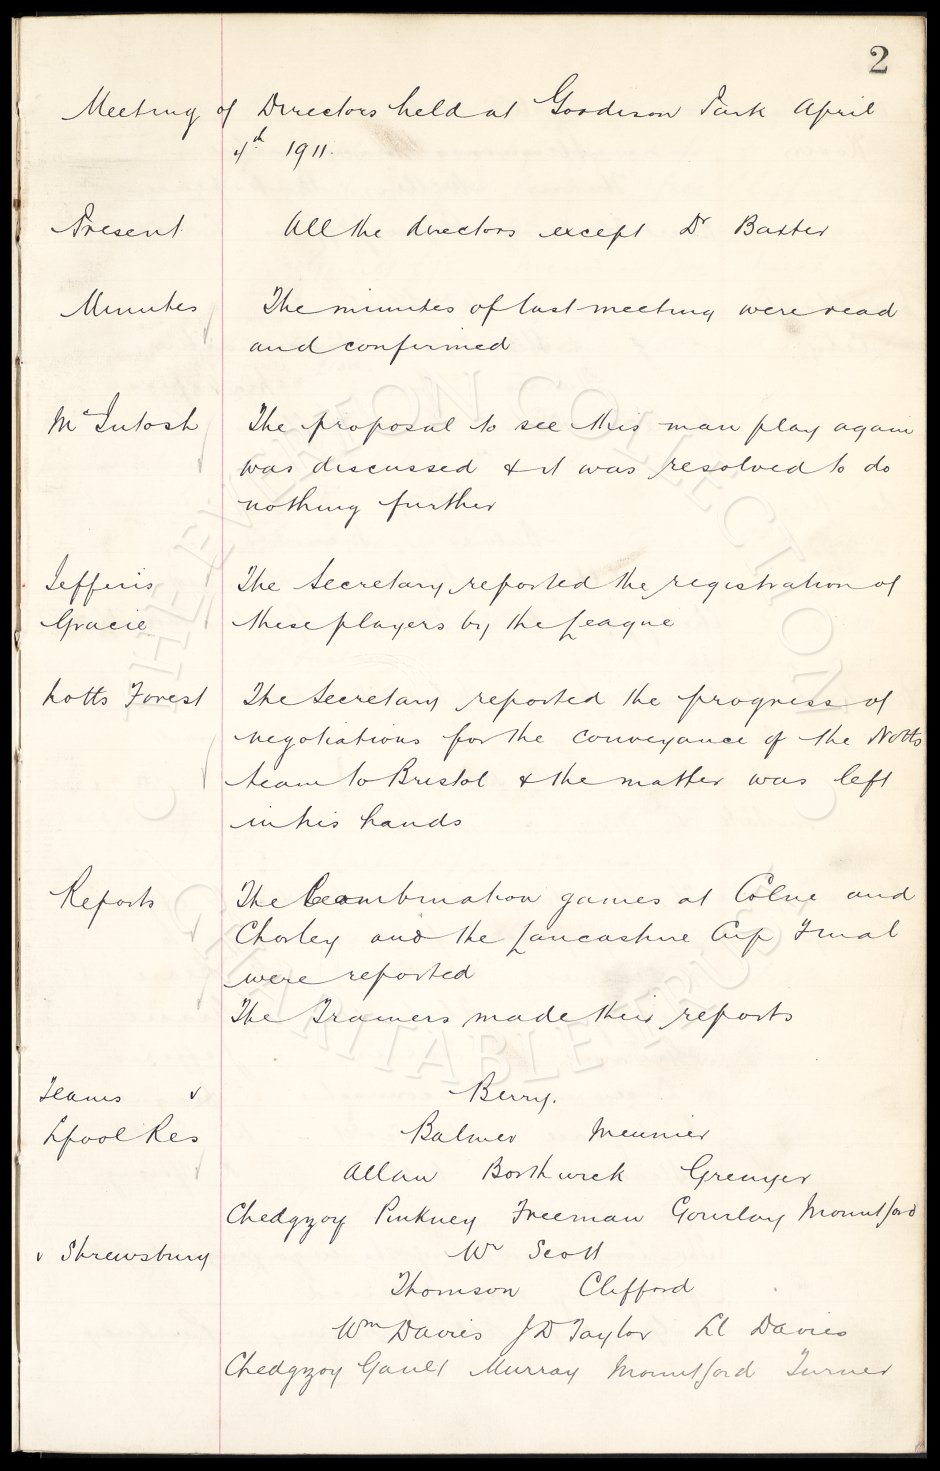 2
Meeting of Directors held at Goodison Park April
4th 1911.
Present All the directors except Dr Baxter
Minutes The minutes of last meeting were read
and confirmed
McIntosh The proposal to see this man play again
was discussed & it was resolved to do
nothing further
Jefferis The Secretary reported the registration of
Gracie these players by the League
Notts Forest The Secretary reported the progress of
negotiations for the conveyance of the Notts
team to Bristol & the matter was left
in his hands
Reports The Combination games at Colne and
Chorley and the Lancashire Cup Final
were reported
The Trainers made their reports
Teams v Berry.
Lpool Res Balmer Meunier
Allan Borthwick Grenyer
Chedgzoy Pinkney Freeman Gourlay Mountford
v Shrewsbury Wm Scott
Thomson Clifford
Wm Davies JD Taylor Ll Davies
Chedgzoy Gault Murray Mountford Turner
THE EVERTON COLLECTION
CHARITABLE TRUST